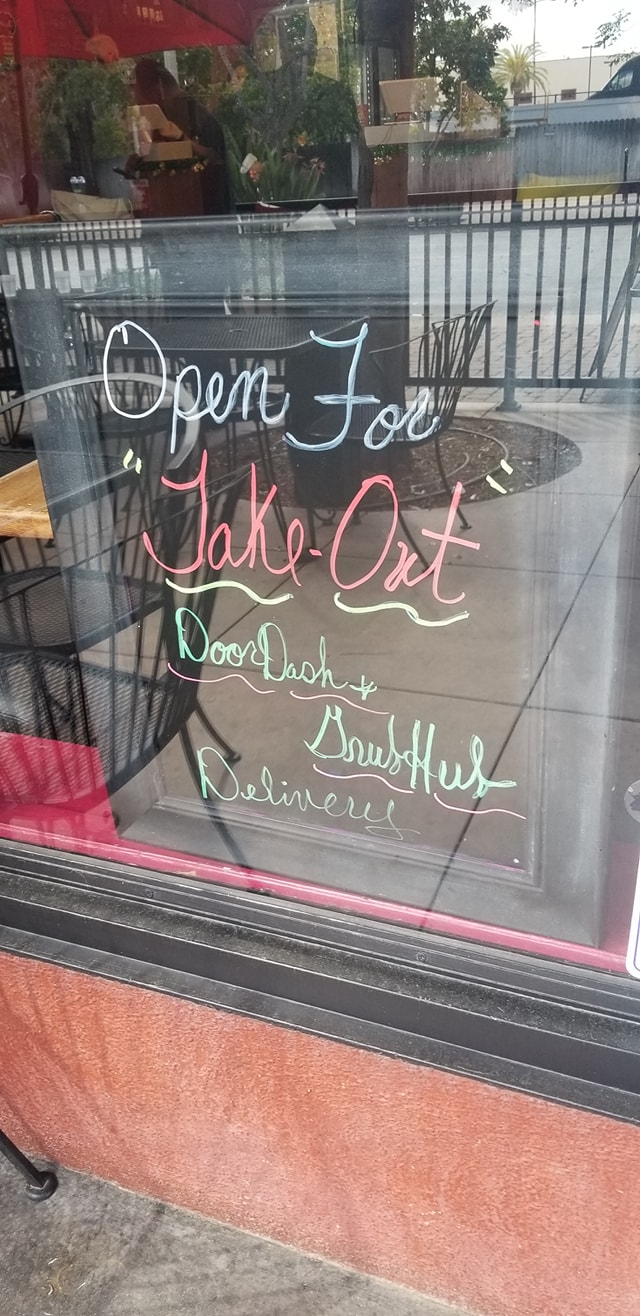 Open For
"Take-Out"
DoorDash +
GrubHub
Delivery